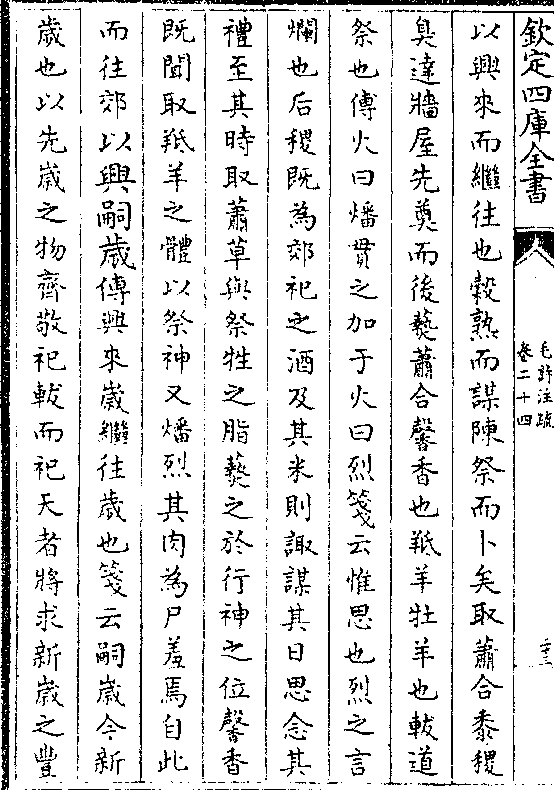 欽定四庫全書
毛詩注疏
卷二十四
以興來而繼往也穀熟而謀陳祭而卜矣取蕭合黍稷
臭達牆屋先奠而後爇蕭合馨香也羝羊牡羊也軷道
祭也傅火曰燔貫之加于火曰烈箋云惟思也烈之言
爛也后稷既為郊祀之酒及其米則諏謀其日思念其
禮至其時取蕭草與祭牲之脂爇之於行神之位馨香
既聞取羝羊之體以祭神又燔烈其肉為尸羞焉自此
而往郊以興嗣歲傳興來歲繼往歲也箋云嗣歲今新
歲也以先歲之物齊敬祀軷而祀天者將求新歲之豐